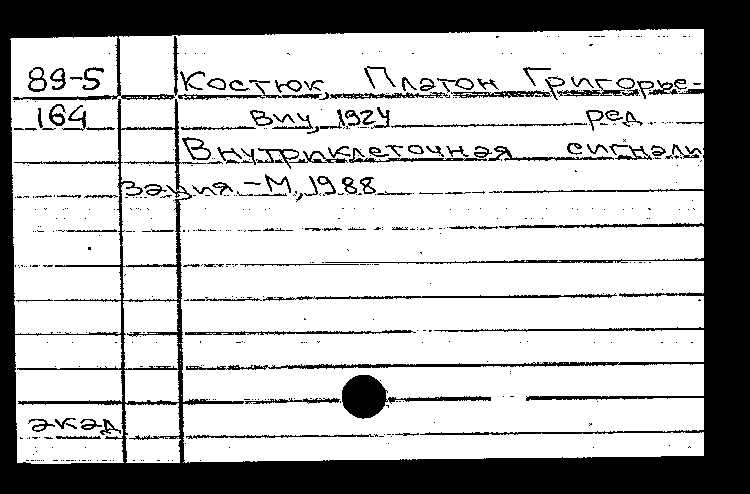 89-5 Костюк, Платон Григорье-
164 вич, 1924 ред
Внутриклеточная сигнали
зация. - М, 1988
акад